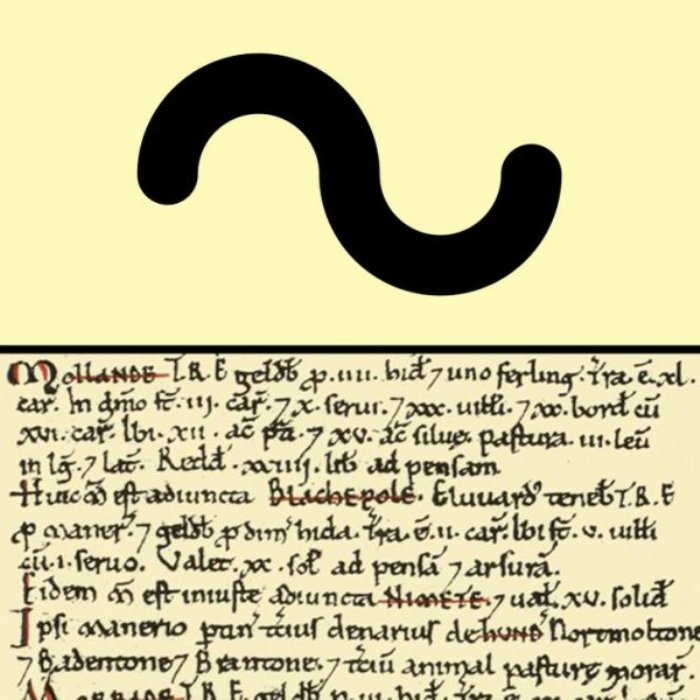 Mollande T.R.E geldb̄ ꝑ .iiii. hid̄ ⁊ uno ferling. Tr̄a .ē. xl.
car̄. In dn̄io st̄ .iii. car̄. ⁊ x. serui. ⁊ xxx. uilli. ⁊ xx. bord̄ cū
xvi. car̄. Ibi .xii. ac̄ p̄ti. ⁊ xv. ac̄ siluę. pastura .iii. leū
in lḡ. ⁊ lat̄. Redd̄ .xxiiii. lib̄ ad pensam
Huic m̄ est adiuncta Blachepole. Eluuard' teneb̄ T.R.E
ꝑ maner̄. ⁊ geldb̄ ꝑ dim̄ hida. Tr̄a ē .ii. car̄. Ibi st̄ .v. uilli
cū .i. seruo. Valet .xx. sol̄ ad pensā ⁊ arsurā.
Eidem m̄ est iniuste adiuncta Nimete. ⁊ ual̄. xv. solid̄
Ipsi manerio ptin̄ t̄cius denarius de hund̄ Nortmoltone
⁊ Badentone ⁊ Brantone. ⁊ t̄ciū animal pasturę morar̄.